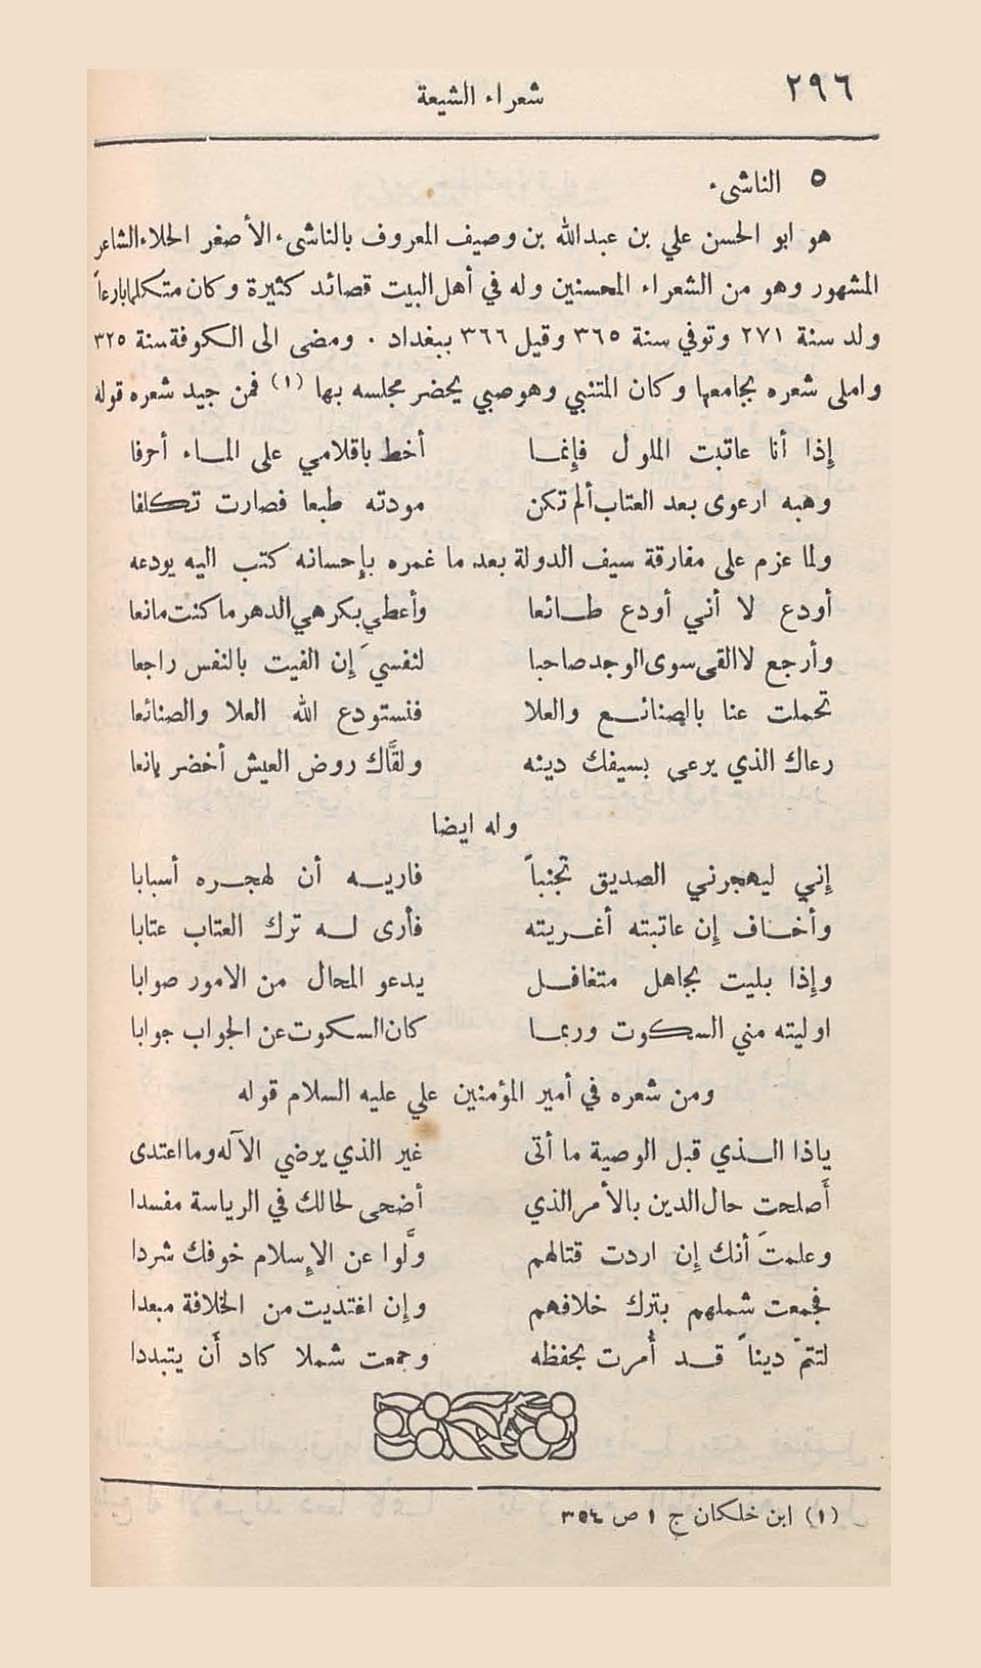 ٢٩٦ شعراء الشيعة
٥ الناشىء
هو ابو الحسن علي بن عبدالله بن وصيف المعروف بالناشىء الأصغر الحلاء الشاعر
المشهور وهو من الشعراء المحسنين وله في أهل البيت قصائد كثيرة وكان متكلما بارعاً
ولد سنة ٢٧١ وتوفي سنة ٣٦٥ وقيل ٣٦٦ ببغداد . ومضى الى الكوفة سنة ٣٢٥
واملى شعره بجامعها وكان المتنبي وهو صبي يحضر مجلسه بها (١) فمن جيد شعره قوله
إذا أنا عاتبت الملول فإنما أخط باقلامي على الماء أحرفا
وهبه ارعوى بعد العتاب ألم تكن مودته طبعا فصارت تكلفا
ولما عزم على مفارقة سيف الدولة بعد ما غمره بإحسانه كتب اليه يودعه
أودع لا أني أودع طائعا وأعطي بكرهي الدهر ما كنت مانعا
وأرجع لا القى سوى الوجد صاحبا لنفسيَ إن الفيت بالنفس راجعا
تحملت عنا بالصنائع والعلا فنستودع الله العلا والصنائعا
رعاك الذي يرعى بسيفك دينه ولقَّاك روض العيش أخضر يانعا
وله ايضا
إني ليهجرني الصديق تجنباً فاريه أن لهجره أسبابا
وأخاف إن عاتبته أغريته فأرى له ترك العتاب عتابا
وإذا بليت بجاهل متغافل يدعو المحال من الامور صوابا
اوليته مني السكوت وربما كان السكوت عن الجواب جوابا
ومن شعره في أمير المؤمنين علي عليه السلام قوله
ياذا الذي قبل الوصية ما أتى غير الذي يرضي الآله وما اعتدى
أَصلحت حال الدين بالأمر الذي أضحى لحالك في الرياسة مفسدا
وعلمتَ أنك إن اردت قتالهم ولَّوا عن الإسلام خوفك شردا
فجمعت شملهم بترك خلافهم وإن اغتديت من الخلافة مبعدا
لتتمّ ديناً قد أُمرت بحفظه وجمعت شملا كاد أَن يتبددا
(١) ابن خلكان ج ١ ص ٣٥٤